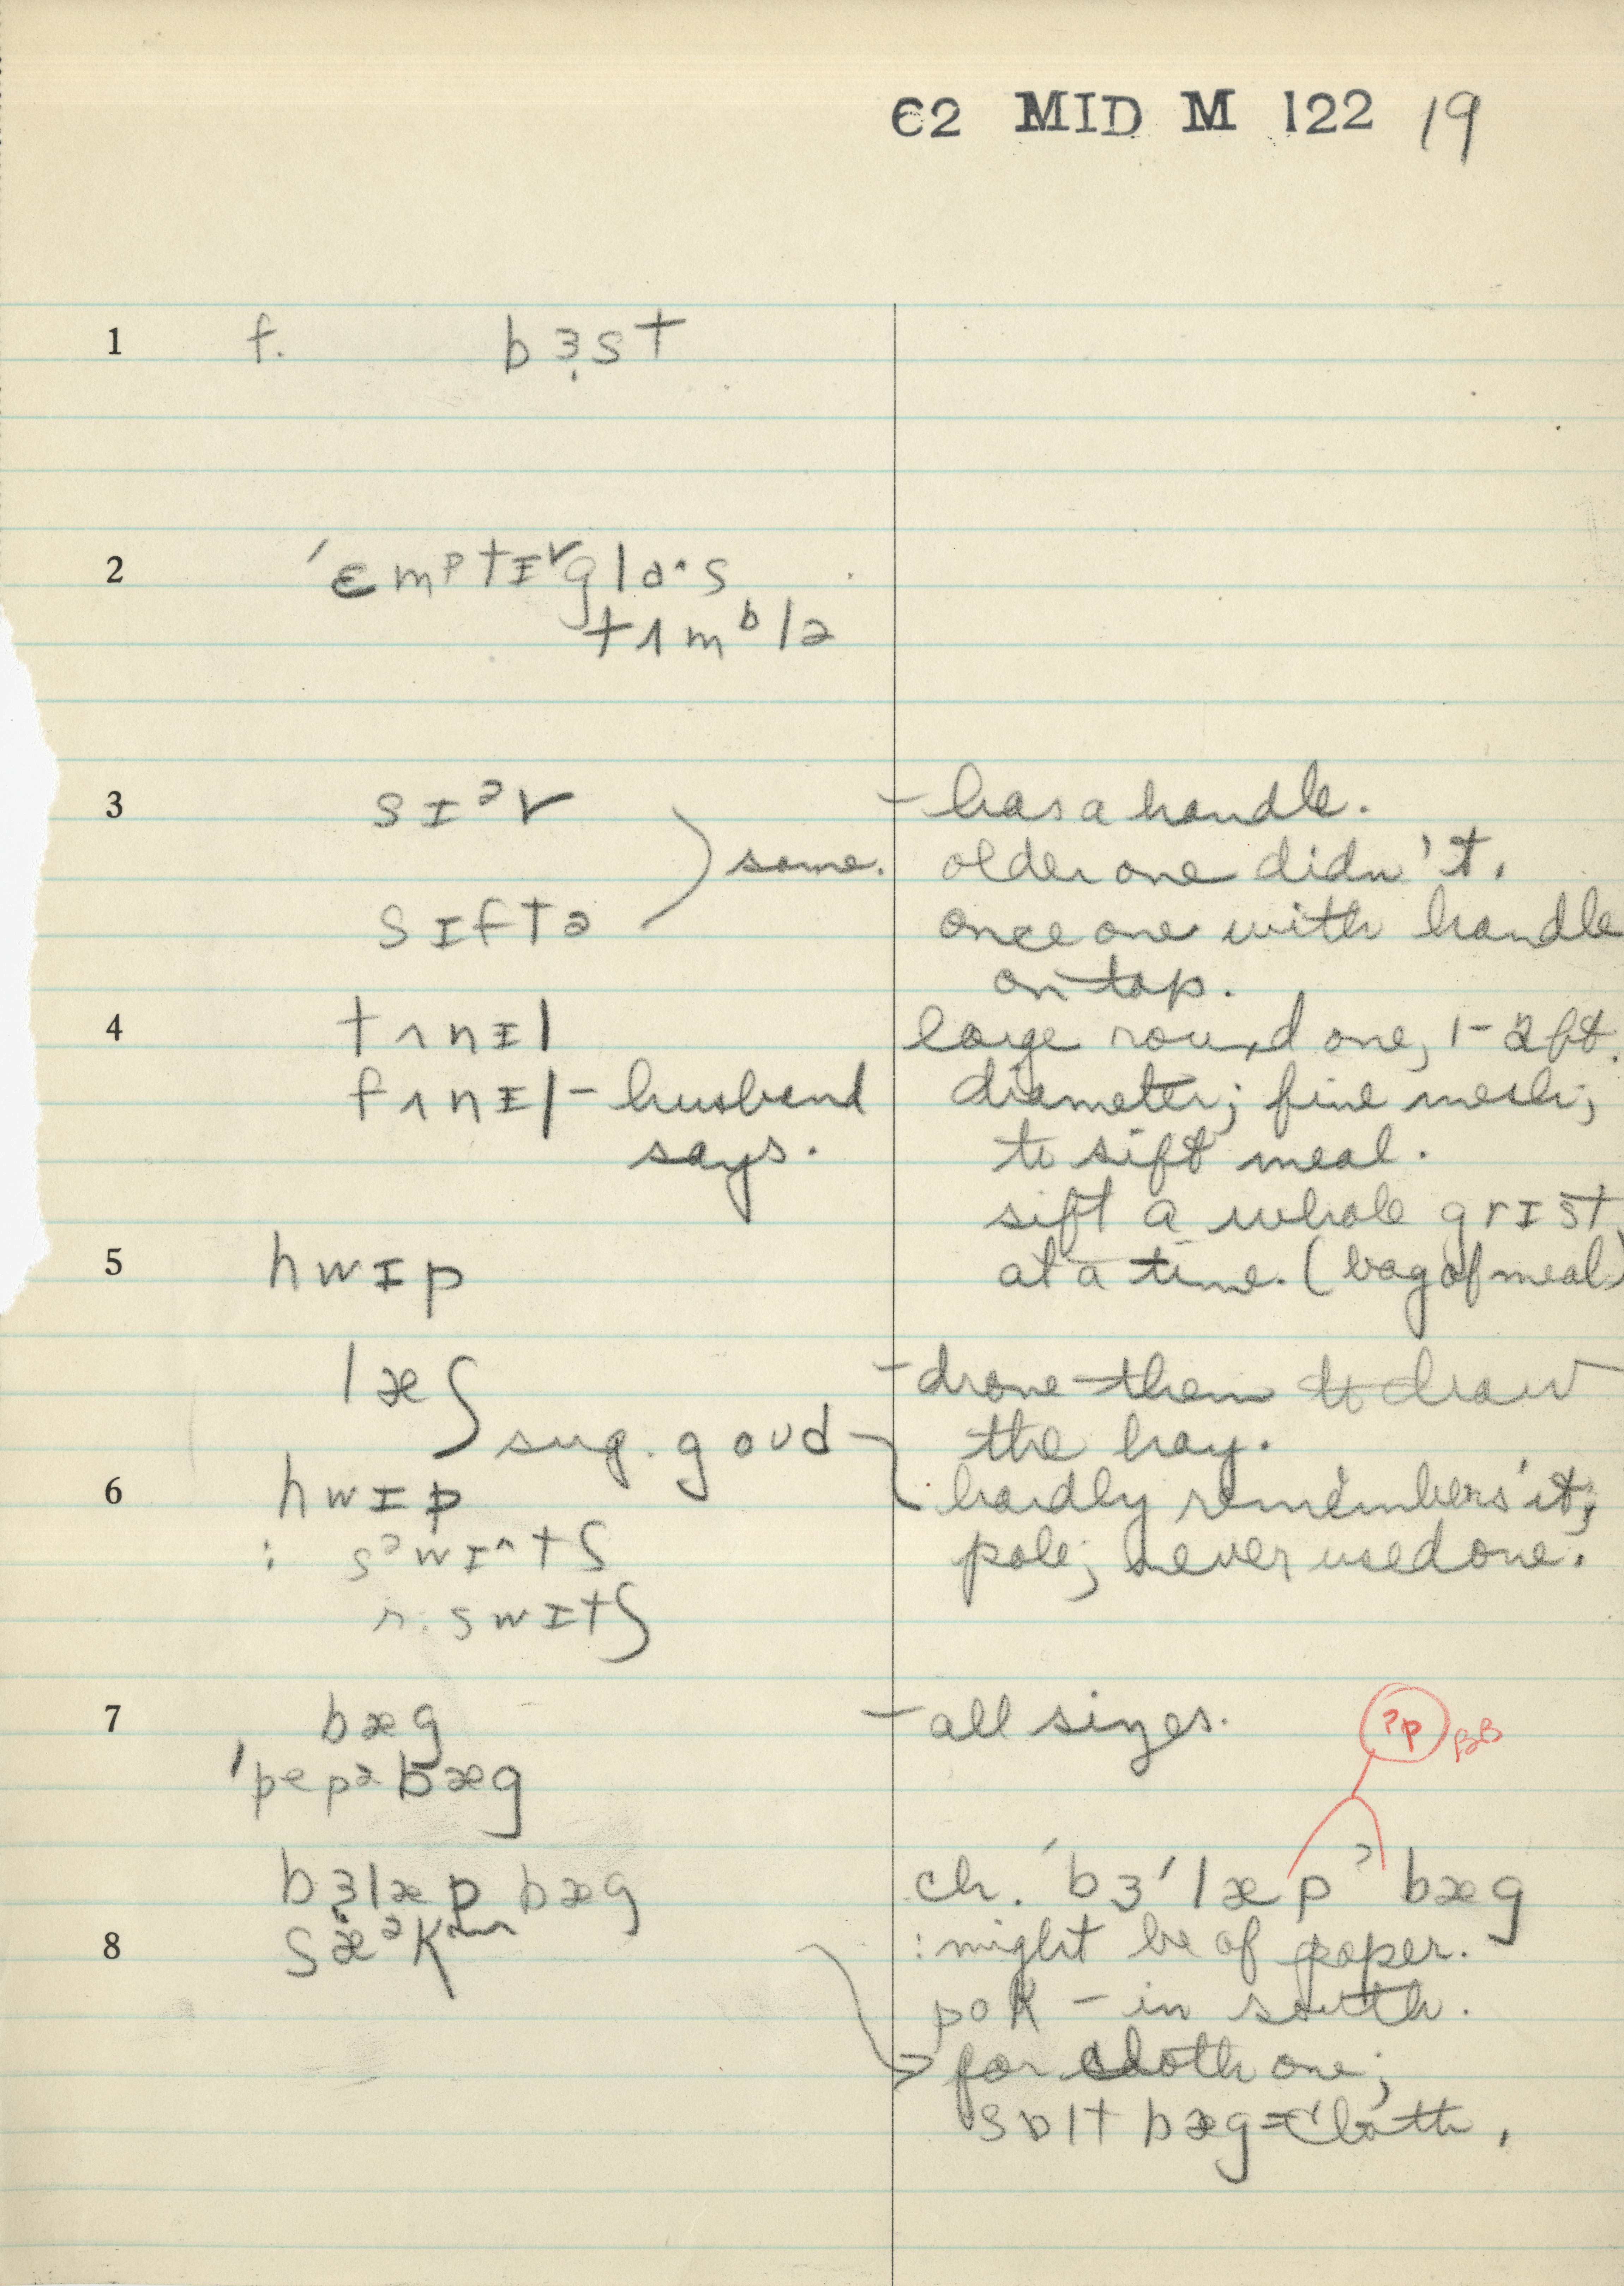 C2 MID M 122 19
1 f. bɜ̣st
2 ˈɛmᵖtɪ˅glaˑs
tʌmᵇlə
3 sɪᵊv – has a handle.
same. older one didn't.
sɪftə once one with handle
on top.
4 tʌnɪl large round one, 1-2 ft.
fʌnɪl – husband diameter; fine mesh;
says. to sift meal.
sift a whole grɪst
5 hwɪp at a time. (bag of meal)
læʃ – drove them to draw
sug. goʊd the hay.
6 hwɪp hardly remembers it;
: sᵊwɪ^tʃ pole; never used one.
r. swɪtʃ
7 bæg – all sizes. ?p BB
ˈpepə bæg
bɜ̣læp bæg ch. ˈbɜˈlæpˀ bæg
8 sæᵊk : might be of paper.
pok – in south.
for cloth one;
sɒlt bæg = cloth.